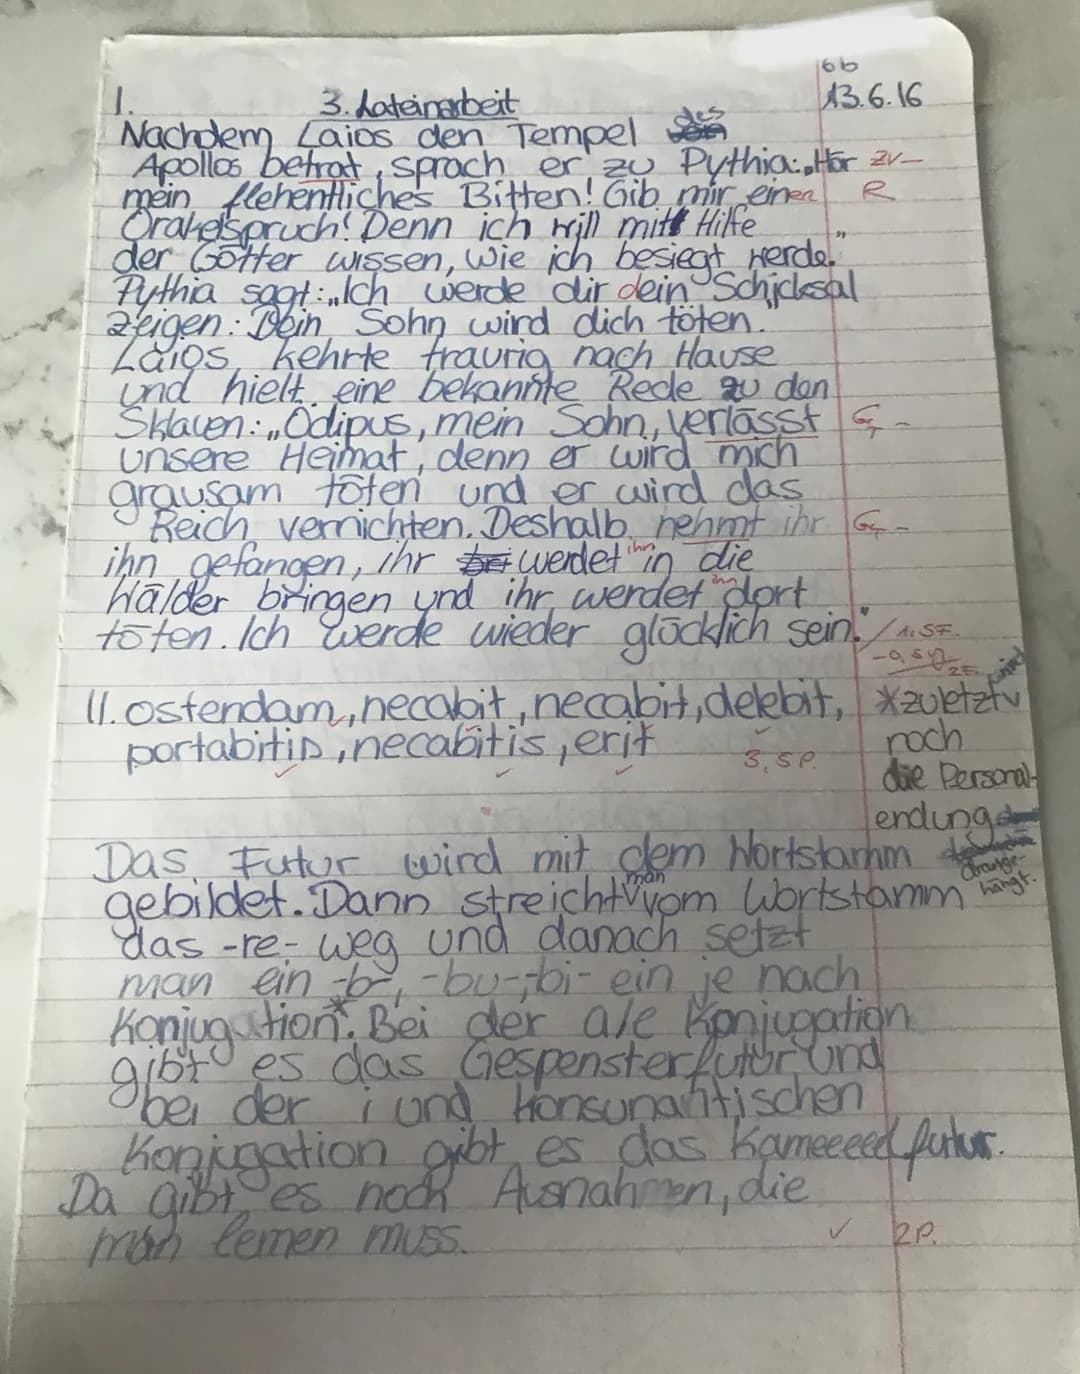 6b
I. 3. Lateinarbeit 13.6.16
Nachdem Laios den Tempel des
Apollos betrat, sprach er zu Pythia: „Hör ZV-
mein flehentliches Bitten! Gib mir einen R
Orakelspruch! Denn ich will mit Hilfe
der Götter wissen, wie ich besiegt werde."
Pythia sagt: „Ich werde dir dein Schicksal
zeigen: Dein Sohn wird dich töten."
Laios kehrte traurig nach Hause
und hielt eine bekannte Rede zu den
Sklaven: „Ödipus, mein Sohn, verlässt G, -
unsere Heimat, denn er wird mich
grausam töten und er wird das
Reich vernichten. Deshalb nehmt ihr G, -
ihn gefangen, ihr werdet ihn in die
Wälder bringen und ihr werdet ihn dort
töten. Ich werde wieder glücklich sein." / 1. SF.
II. ostendam, necabit, necabit, delebit, *zuletzt wird
portabitis, necabitis, erit 3,5P. noch
die Personal-
endung
Das Futur wird mit dem Wortstamm drange-
gebildet. Dann streicht man vom Wortstamm hängt.
das -re- weg und danach setzt
man ein -b-, -bu-, -bi- ein je nach
Konjugation*. Bei der a/e Konjugation
gibt es das Gespensterfutur und
bei der i und Konsunantischen
Konjugation gibt es das Kameeeelfutur.
Da gibt es noch Ausnahmen, die
man lernen muss. ✓ 2P.